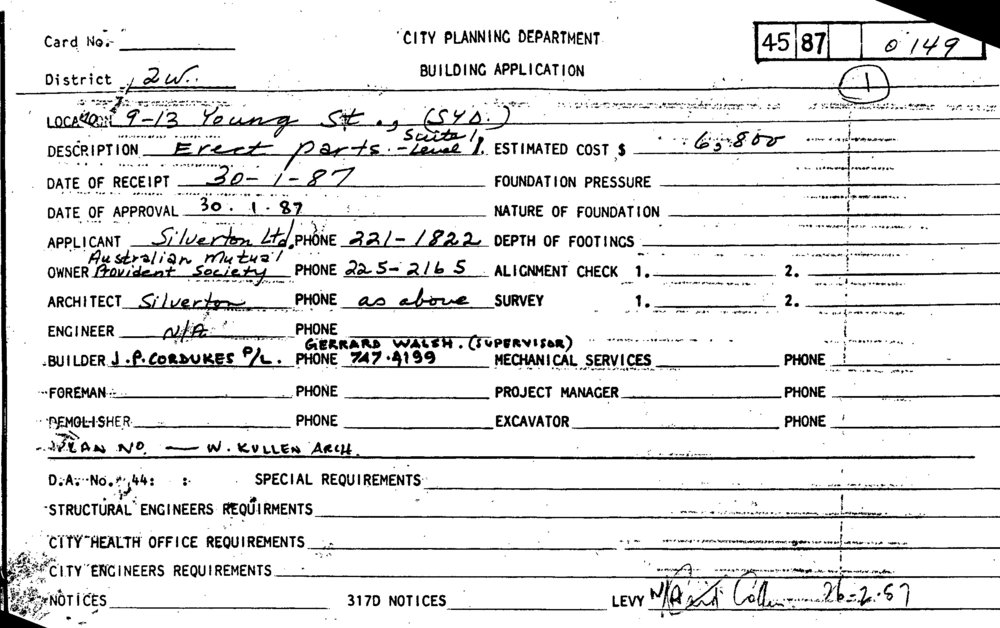 Card No. CITY PLANNING DEPARTMENT 45 87 0149
District 2W. BUILDING APPLICATION 1
LOCATION 9-13 Young St., (SYD.)
DESCRIPTION Erect parts. - Suite 1, Level 1. ESTIMATED COST $ 6,800
DATE OF RECEIPT 30-1-87 FOUNDATION PRESSURE
DATE OF APPROVAL 30.1.87 NATURE OF FOUNDATION
APPLICANT Silverton Ltd. PHONE 221-1822 DEPTH OF FOOTINGS
Australian Mutual
OWNER Provident Society PHONE 225-2165 ALIGNMENT CHECK 1. 2.
ARCHITECT Silverton PHONE as above SURVEY 1. 2.
ENGINEER N/A PHONE
GERRARD WALSH. (SUPERVISOR)
BUILDER J.P. CORDUKES P/L. PHONE 747.4199 MECHANICAL SERVICES PHONE
FOREMAN PHONE PROJECT MANAGER PHONE
DEMOLISHER PHONE EXCAVATOR PHONE
PLAN NO. — W. KULLEN ARCH.
D.A. No. 44: : SPECIAL REQUIREMENTS
STRUCTURAL ENGINEERS REQUIRMENTS
CITY HEALTH OFFICE REQUIREMENTS
CITY ENGINEERS REQUIREMENTS
NOTICES 317D NOTICES LEVY N/A 26-2-87